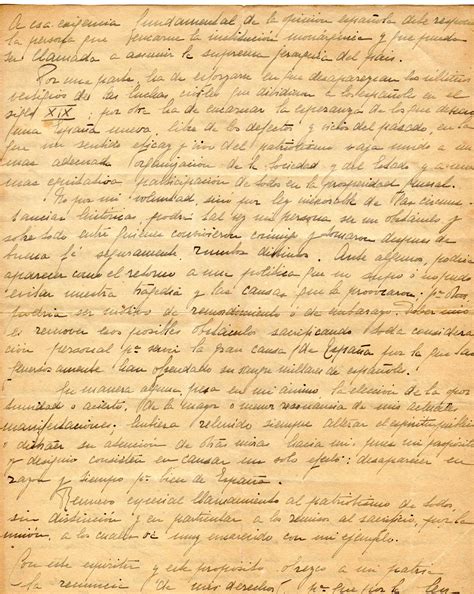 A esa exigencia fundamental de la opinión española debe responder
la persona que encarne la institución monárquica y que pueda
ser llamada a asumir la suprema jerarquía del país.
Por una parte, ha de esforzarse en que desaparezcan los últimos
vestigios de las luchas civiles que dividieron a los españoles en el
siglo XIX; por otra ha de encarnar la esperanza de los que desean
una España nueva, libre de los defectos y vicios del pasado, en la
que un sentido eficaz y vivo del patriotismo vaya unido a una
mas adecuada organización de la Sociedad y del Estado y a una
mas equitativa participación de todos en la prosperidad general.
No por mi voluntad, sino por ley inexorable de las circuns-
tancias históricas, podría tal vez mi persona ser un obstáculo y
sobre todo entre quienes convivieron conmigo y tomaron despues de
buena fé seguramente, rumbos distintos. Ante algunos, podria
aparecer como el retorno a una politica que no supo ó no pudo
evitar nuestra tragedia y las causas que la provocaron; pª otros
podria ser motivo de remordimiento ó de embarazo. Debo
remover esos posibles obstáculos sacrificando toda considera
ción personal pª servir la gran causa de España por la que tan
generosamente han ofrendado su sangre millares de españoles.
En manera alguna pesa en mi ánimo la elección de la opor
tunidad o acierto, de la mayor o menor resonancia de mis actuales
manifestaciones. Hubiera rehuido siempre alterar el espíritu público
ó distraer su atención de otras miras hacia mi, pues mi propósito
y designio consisten en causar un solo efecto: desaparecer en
razon y tiempo pª bien de España.
Renuevo especial llamamiento al patriotismo de todos,
sin distinción, y en particular a los remisos al sacrificio, por la
unión, a los cuales os muy enseñando con mi ejemplo.
Con este espiritu y este propósito ofrezco a mi patria
la renuncia de mis derechos, pª que por la